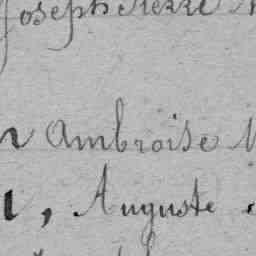 Joseph Pierre
Ambroise
, Auguste